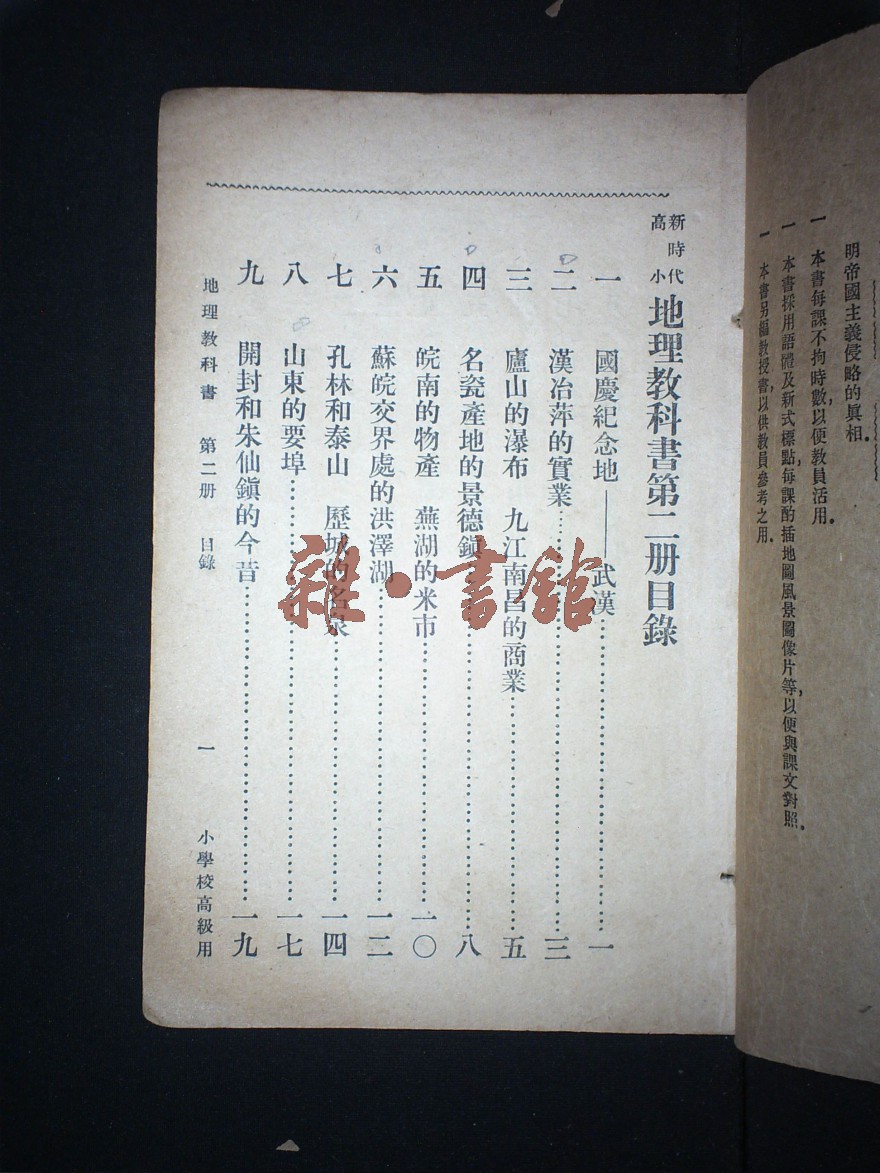 明帝國主義侵略的真相。
一 本書每課不拘時數，以便教員活用。
一 本書採用語體及新式標點，每課酌插地圖風景圖像片等，以便與課文對照。
一 本書另編教授書，以供教員參考之用。
新時代高小地理教科書第二册目錄
一 國慶紀念地——武漢……一
二 漢冶萍的實業……三
三 廬山的瀑布 九江南昌的商業……五
四 名瓷產地的景德鎮……八
五 皖南的物產 蕪湖的米市……一〇
六 蘇皖交界處的洪澤湖……一二
七 孔林和泰山 歷城的名泉……一四
八 山東的要埠……一七
九 開封和朱仙鎮的今昔……一九
地理教科書 第二册 目錄 一 小學校高級用
雜·書館